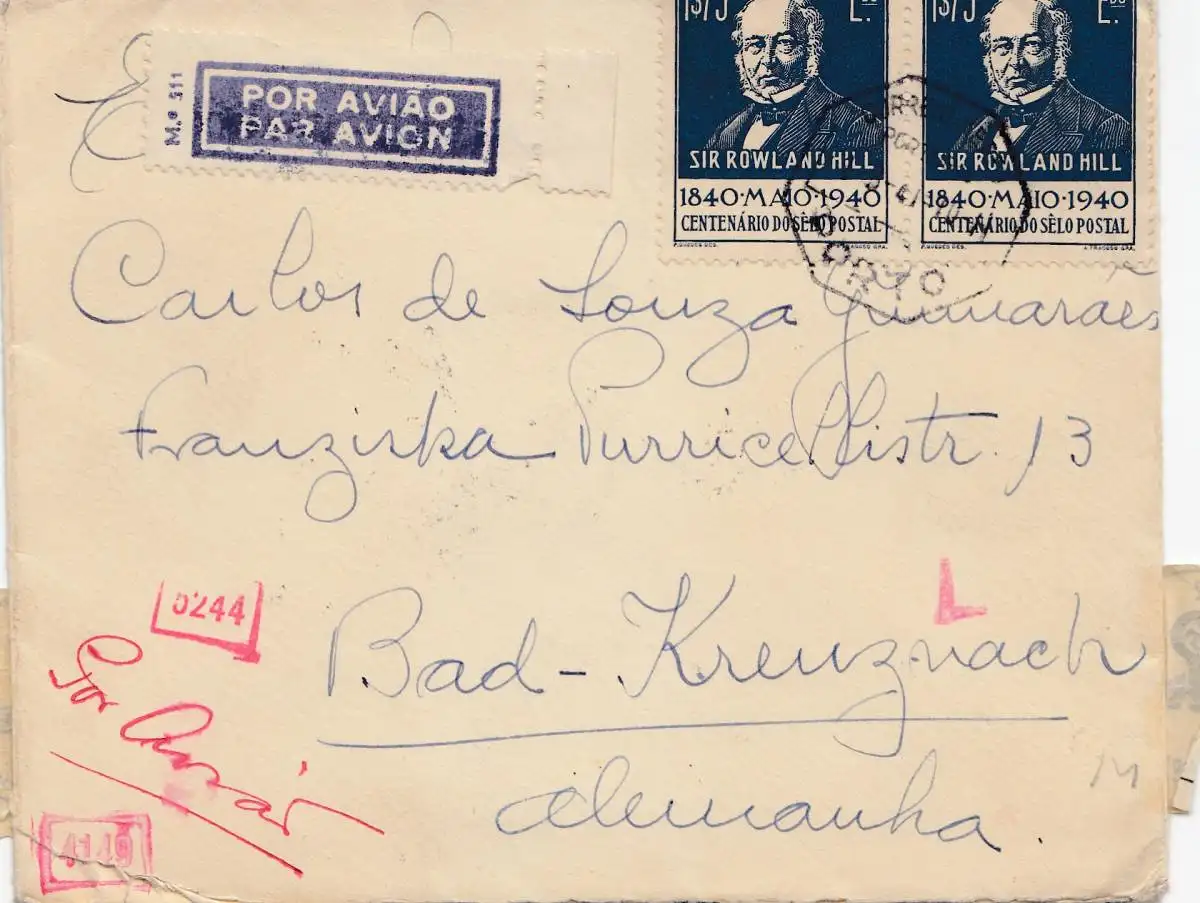 1$75 E.
1$75 E.
Mº 511
POR AVIÃO
PAR AVION
SIR ROWLAND HILL
SIR ROWLAND HILL
1840·MAIO·1940
1840·MAIO·1940
CENTENÁRIO DO SÊLO POSTAL
CENTENÁRIO DO SÊLO POSTAL
PORTO
Carlos de Souza Guimarães
Franziska Purricellistr. 13
5244
L
Bad-Kreuznach
Por Avião
Alemanha.
4149